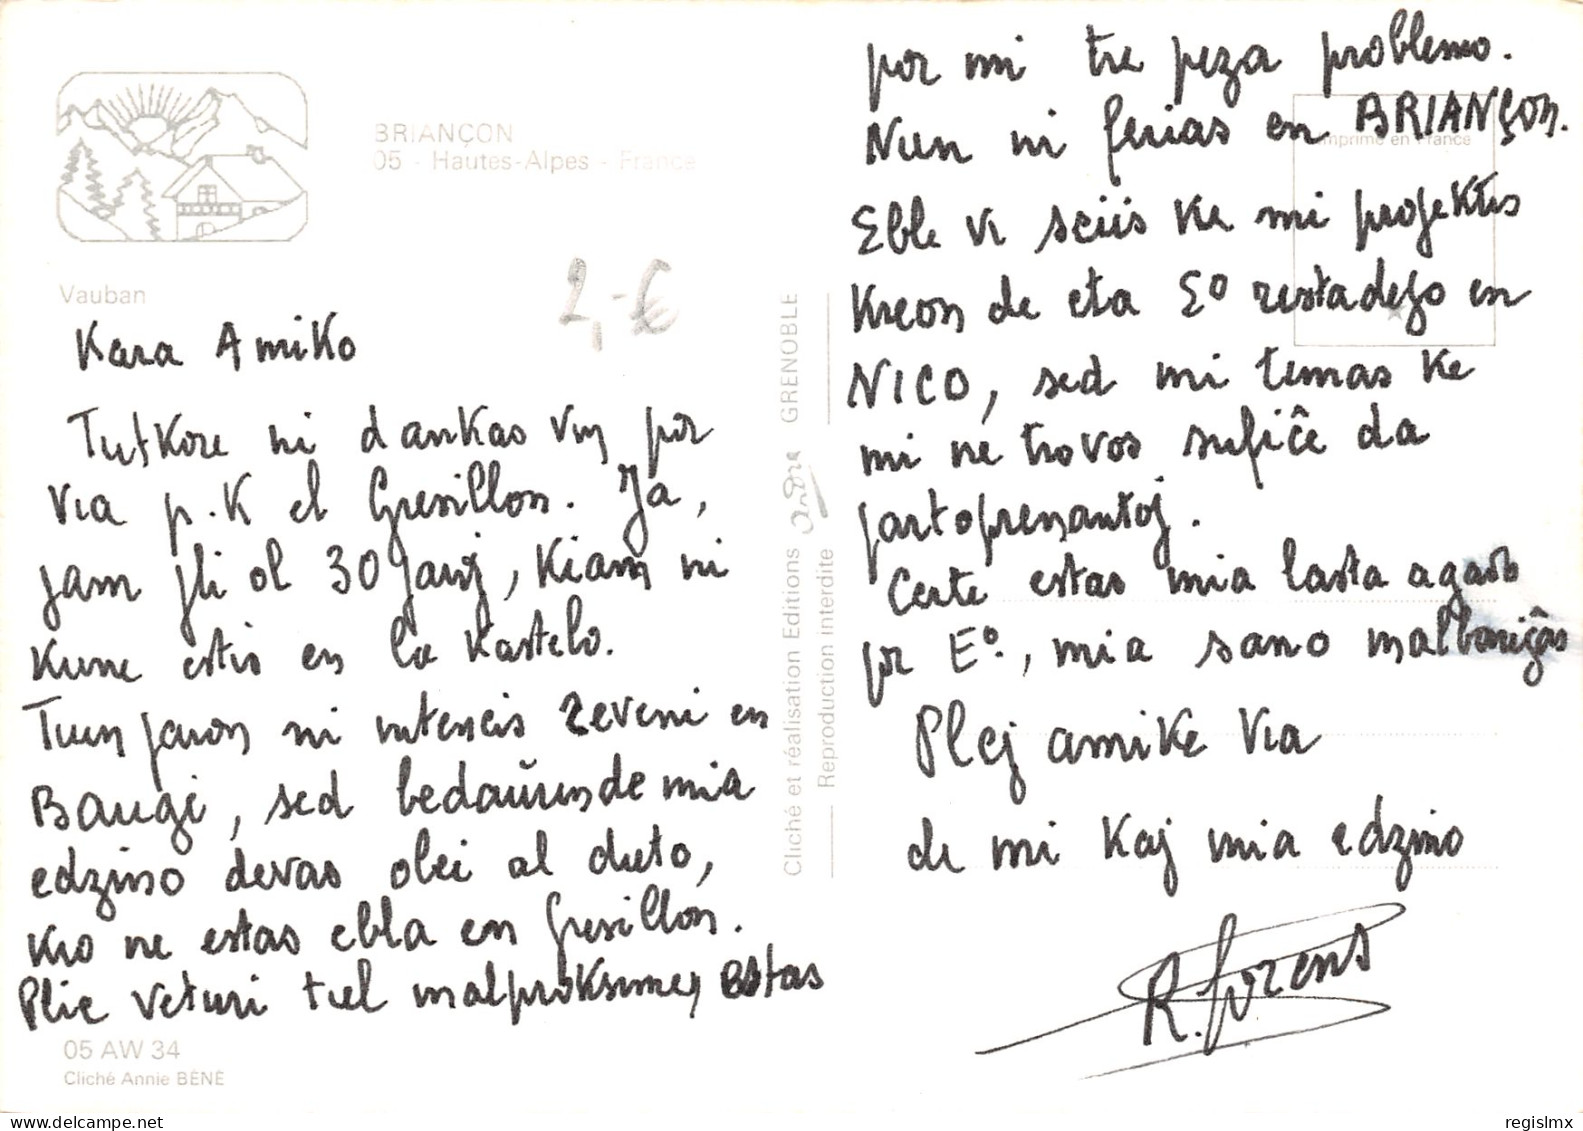 BRIANÇON
05 - Hautes-Alpes - France
Vauban
2,-€
Kara Amiko
Tutkore ni dankas vin por
via p.K el Gresillon. Ja,
jam pli ol 30 jaroj, kiam ni
kune estis en la Kastelo.
Tiun jaron ni intencis reveni en
Baugé, sed bedaŭrinde mia
edzino devas olei al dieto,
kio ne estas ebla en Gresillon.
Plie veturi tiel malproksimen estas
05 AW 34
Cliché Annie BÉNÉ
Cliché et réalisation Editions andre GRENOBLE
Reproduction interdite
Imprimé en France
por mi tre peza problemo.
Nun ni ferias en BRIANÇON.
Eble vi sciis ke mi projektis
kreon de eta Eº restadejo en
NICO, sed mi timas ke
mi ne trovos sufiĉe da
partoprenantoj.
Certe estas mia lasta agado
por Eº., mia sano malboniĝas
Plej amike via
de mi kaj mia edzino
R. Lorens
regislmx